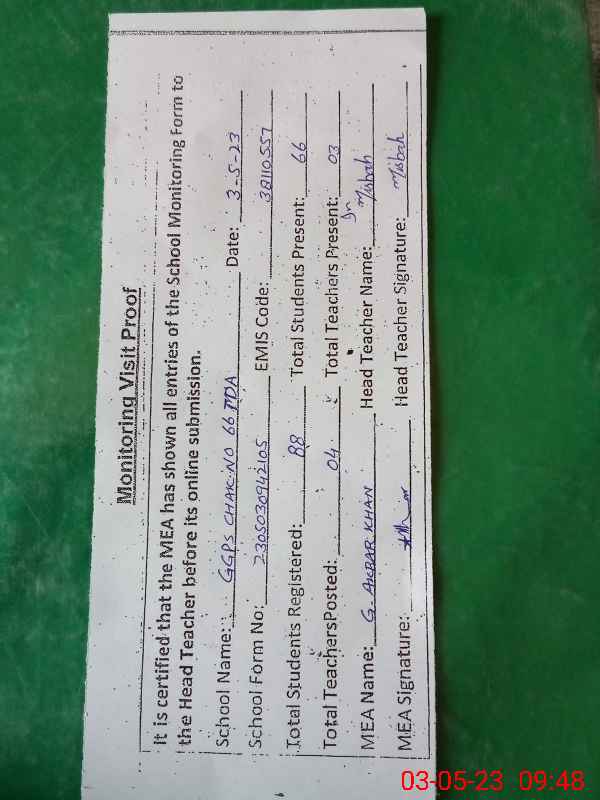 Monitoring Visit Proof
It is certified that the MEA has shown all entries of the School Monitoring Form to
the Head Teacher before its online submission.
School Name: GGPS CHAK NO 66 TDA Date: 3-5-23
School Form No: 2305030942105 EMIS Code: 38110557
Total Students Registered: 88 Total Students Present: 66
Total TeachersPosted: 04 Total Teachers Present: 03
MEA Name: G. AKBAR KHAN Head Teacher Name: Misbah
MEA Signature: Head Teacher Signature: Misbah
03-05-23 09:48